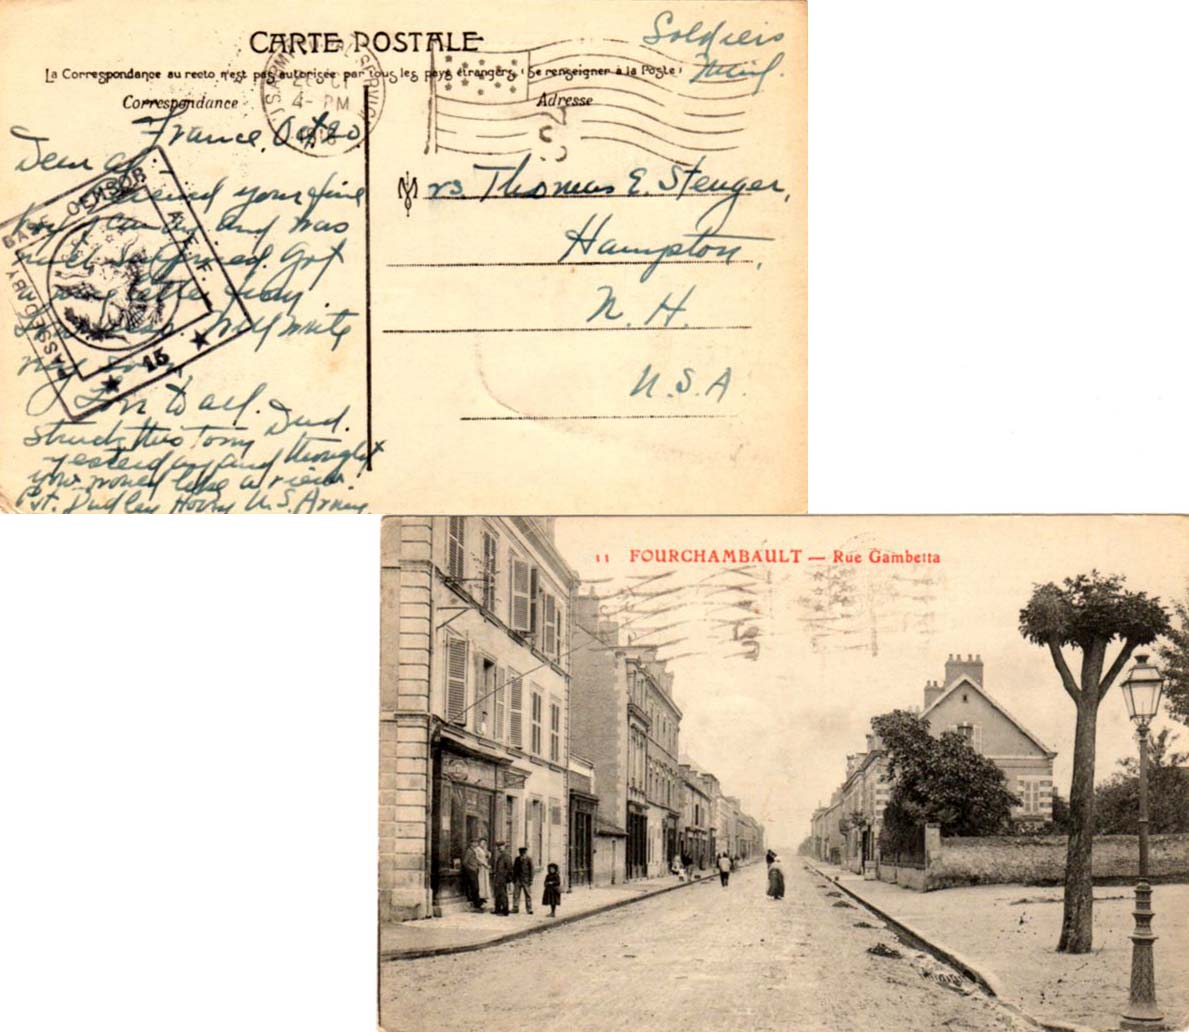 CARTE POSTALE
Soldiers
Mail.
La Correspondance au recto n'est pas autorisée par tous les pays étrangers (Se renseigner à la Poste)
Correspondance
Adresse
U.S. ARMY SERVICE
4- PM
France, Oct 20
Dear all:
your fine
box candy and was
much surprised. Got
letter
Will write
Love to all. Dud.
Struck this town
yesterday and thought
you would like a view.
Pvt. Dudley U.S. Army
PASSED BY
BASE CENSOR
A.E.F.
★ 15 ★
Mrs. Thomas E. Stenger,
Hampton,
N. H.
U.S.A.
11 FOURCHAMBAULT — Rue Gambetta